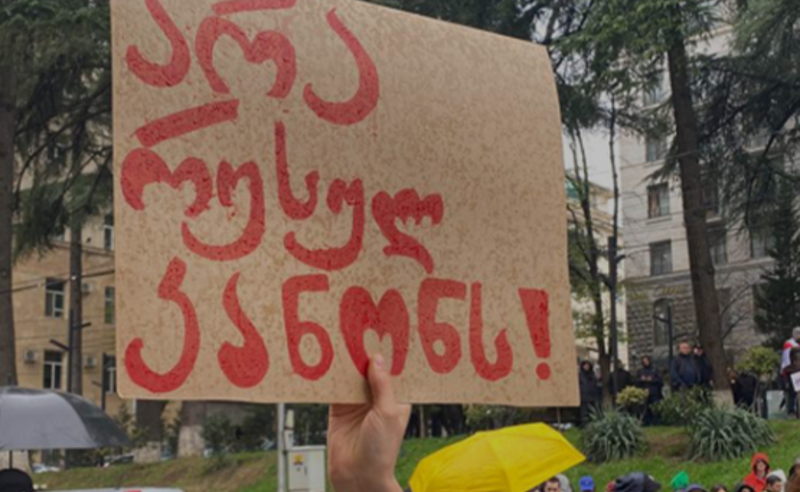 არა
რუსულ
კანონს!